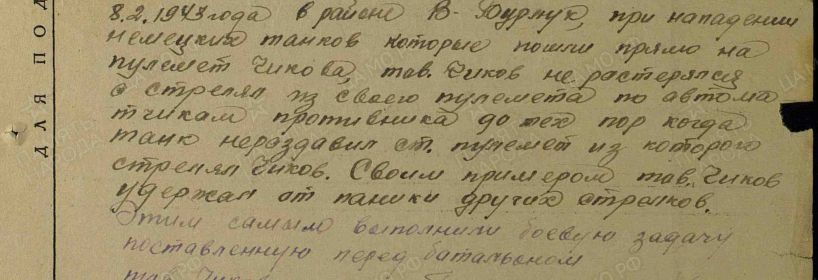 8.2.1943 года в районе В-Бурлук, при нападении
немецких танков которые пошли прямо на
пулемет Чикова, тов. Чиков не растерялся
а стрелял из своего пулемета по автома
тчикам противника до тех пор когда
танк нераздавил ст. пулемет из которого
стрелял Чиков. Своим примером тов. Чиков
удержал от паники других стрелков.
Этим самым выполнили боевую задачу
поставленную перед батальоном
тов. Чиков
ДЛЯ ПОД